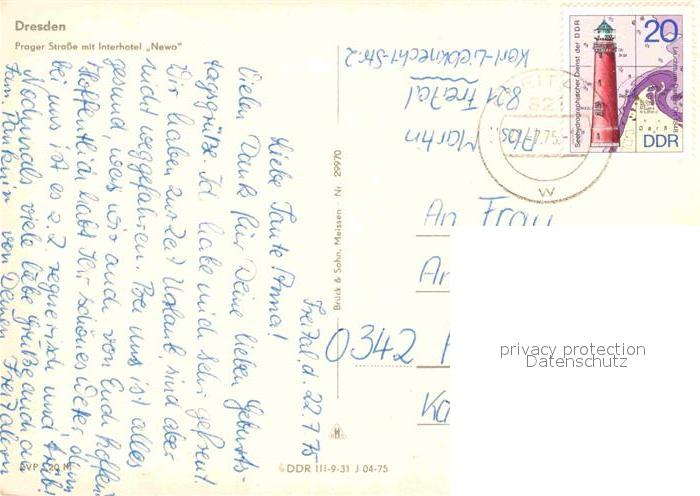 Dresden
Prager Straße mit Interhotel „Newa“
Freital, d. 22.7.75
Liebe Tante Anna!
Vielen Dank für Deine lieben Geburts-
tagsgrüße. Ich habe mich sehr gefreut.
Wir haben zur Zeit Urlaub, sind aber
nicht weggefahren. Bei uns ist alles
gesund, was wir auch von Euch hoffen.
Hoffentlich habt Ihr schönes Wetter, denn
bei uns ist es z.Z. regnerisch und trüb.
Nochmals viele liebe Grüße auch an
Fam. von Deinen Freitalern
EVP 20 M
Brück & Sohn, Meissen - Nr 29970
DDR III-9-31 J 04-75
Abs.:
Martin
821 Freital
Karl-Liebknecht-Str. 2
821
W
Seehydrographischer Dienst der DDR
20
DDR
An Frau
0342
privacy protection
Datenschutz